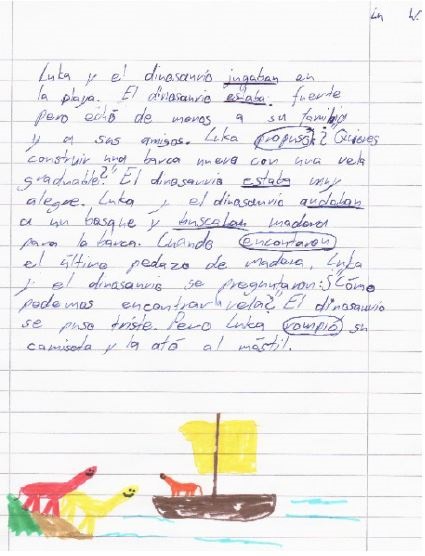 in W.
Luka y el dinosaurio jugaban en
la playa. El dinosaurio estaba fuerte
pero echó de menos a su familia
y a sus amigos. Luka propuso: "¿Quieres
construir una barca nueva con una vela
graduable?" El dinosaurio estaba muy
alegre. Luka y el dinosaurio andaban
a un bosque y buscaban madera
para la barca. Cuando encontaron
el último pedazo de madera, Luka
y el dinosaurio se preguntaron: "¿Cómo
podemos encontrar la vela?" El dinosaurio
se puso triste. Pero Luka rompió su
camiseta y la ató al mástil.